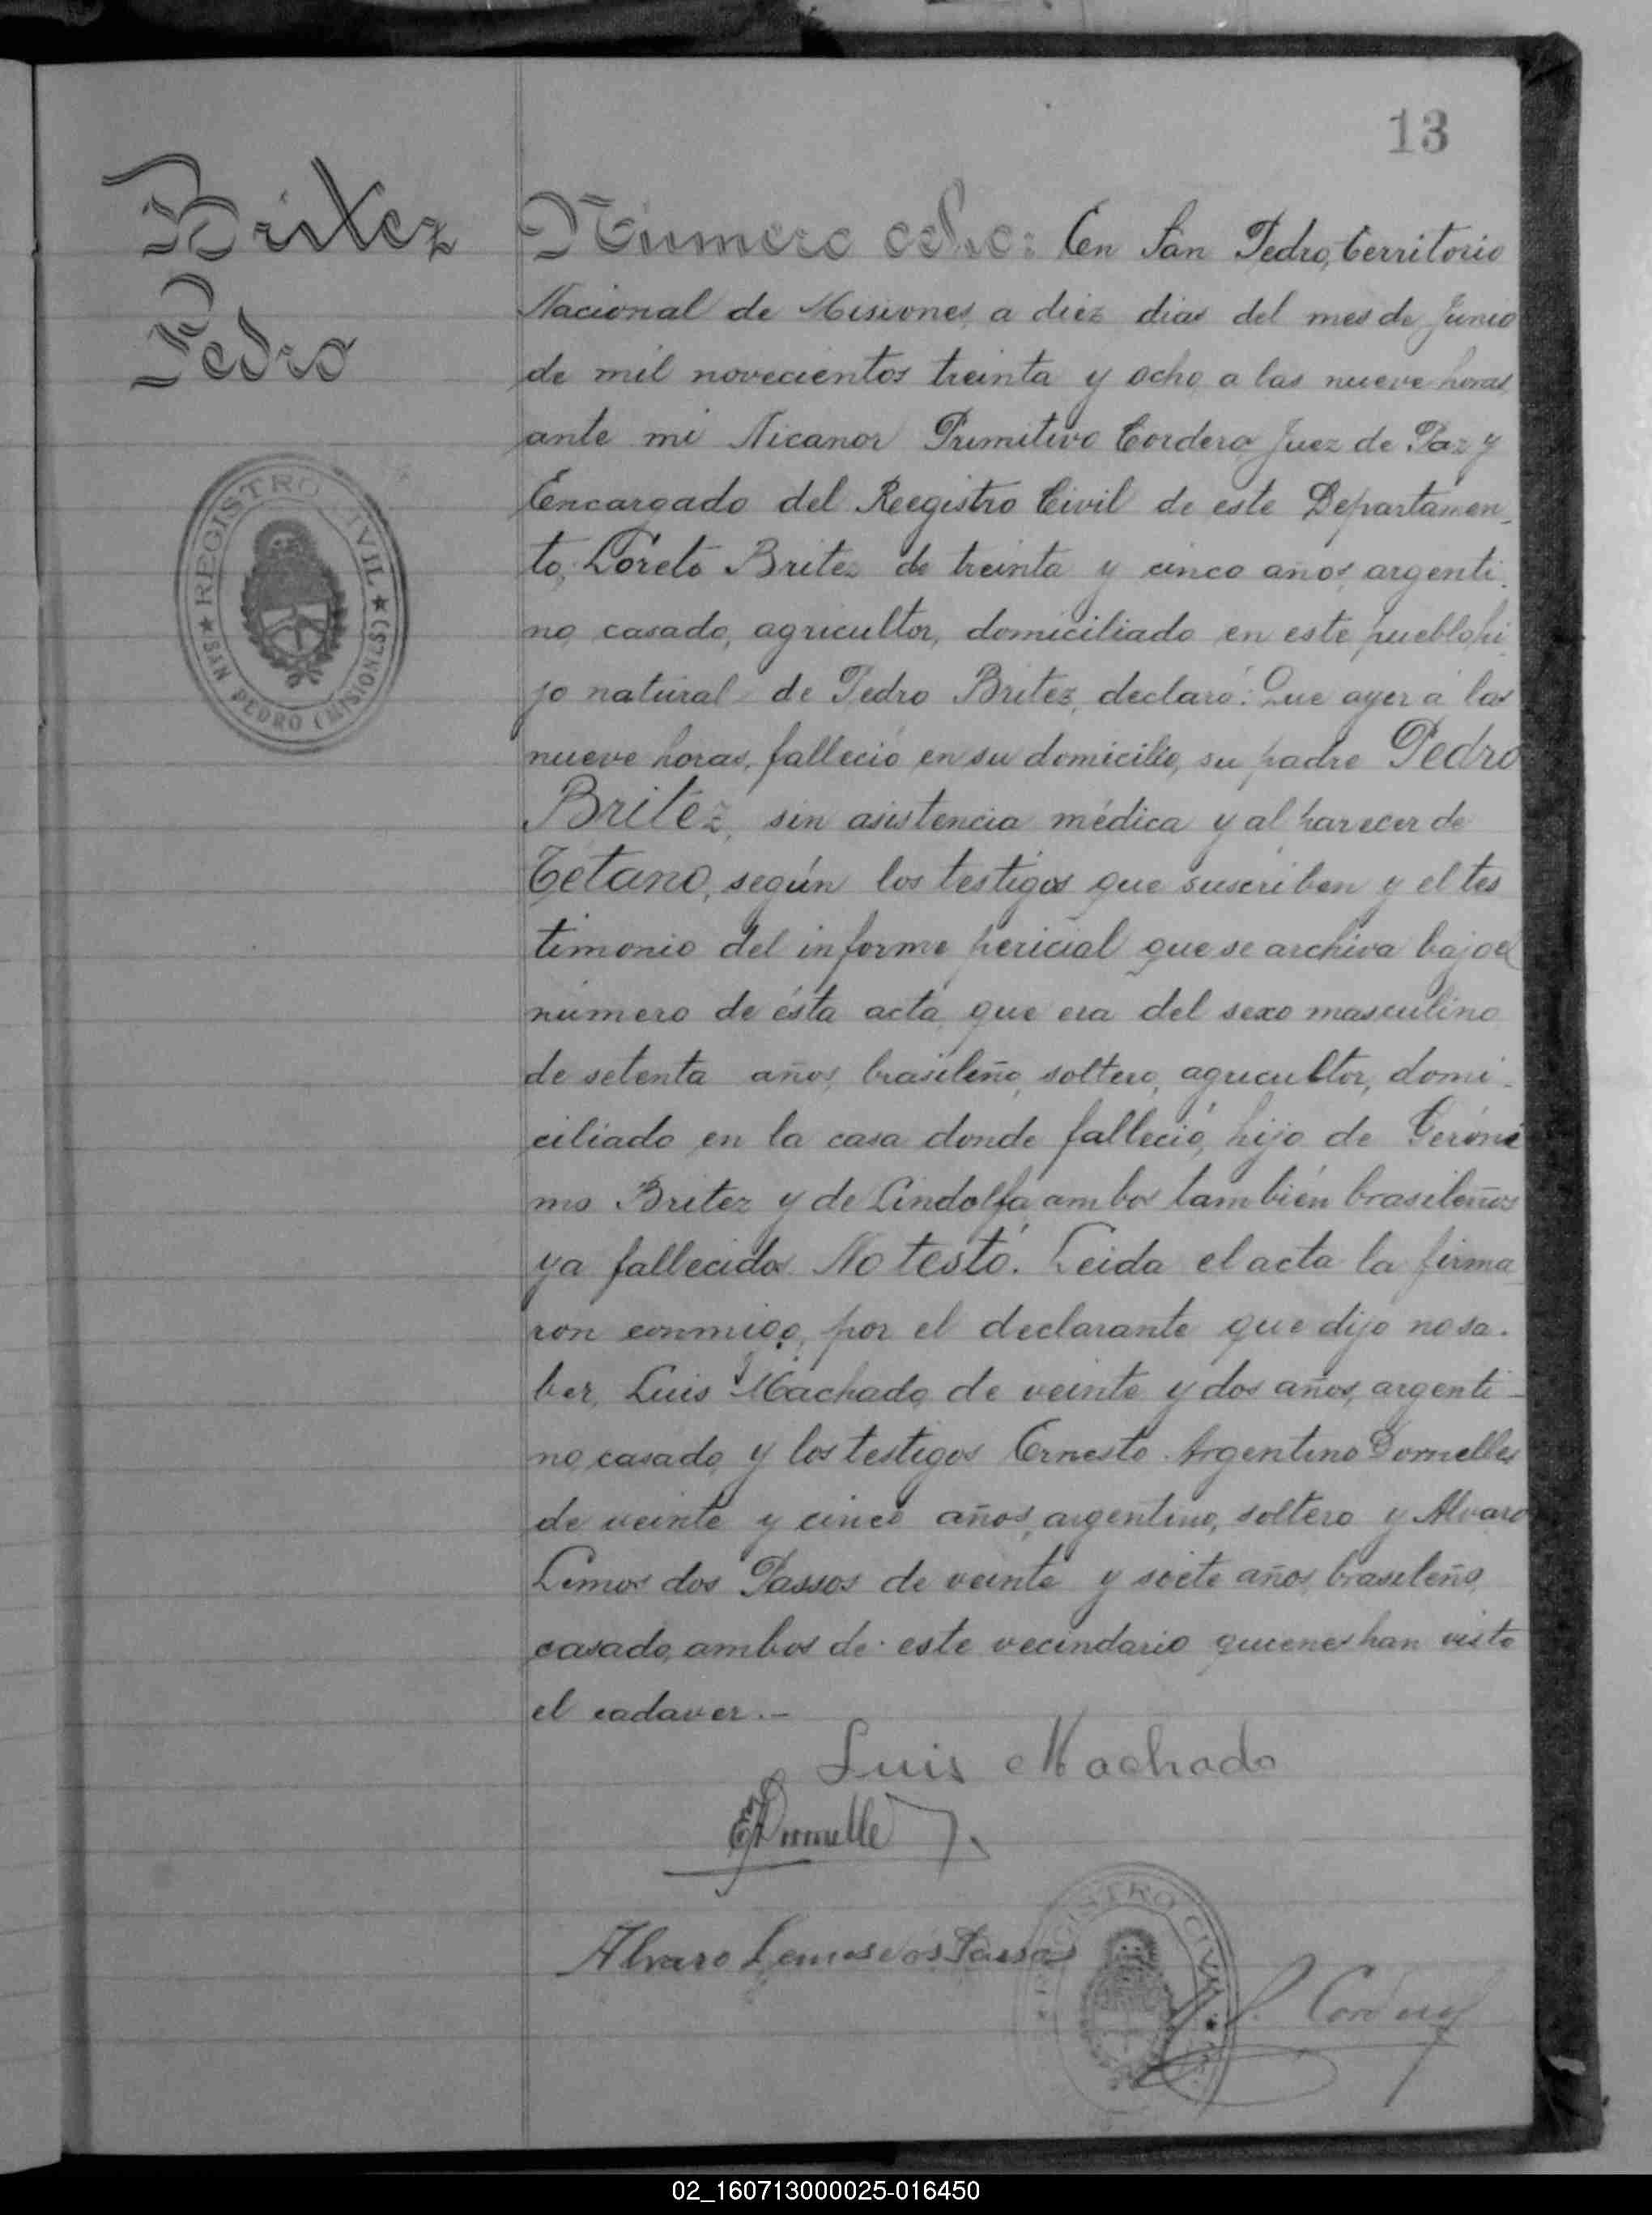 13
Britez
Pedro
REGISTRO CIVIL
SAN PEDRO (MISIONES)
Número ocho: En San Pedro, Territorio
Nacional de Misiones, a diez dias del mes de Junio
de mil novecientos treinta y ocho, a las nueve horas,
ante mi Nicanor Primitivo Cordero, Juez de Paz y
Encargado del Reegistro Civil de este Departamen-
to, Loreto Britez de treinta y cinco años, argenti-
no, casado, agricultor, domiciliado en este pueblo, hi-
jo natural de Pedro Britez, declaró: Que ayer á las
nueve horas, falleció en su domicilio, su padre Pedro
Britez, sin asistencia médica y al parecer de
Tétano, según los testigos que suscriben y el tes
timonio del informe pericial que se archiva bajo el
número de ésta acta, que era del sexo masculino
de setenta años, brasileño, soltero, agricultor, domi-
ciliado en la casa donde falleció, hijo de Geróni
mo Britez y de Lindolfa, ambos también brasileños
ya fallecidos. No testó. Leida el acta la firma
ron conmigo, por el declarante que dijo no sa-
ber, Luis Machado, de veinte y dos años, argenti-
no, casado, y los testigos Ernesto Argentino Dornelles
de veinte y cinco años, argentino, soltero y Alvaro
Lemos dos Passos de veinte y siete años, brasileño,
casado, ambos de este vecindario quienes han visto
el cadaver.-
Luis Machado
E Dornelle
Alvaro Lemos dos Passos
REGISTRO CIVIL
P. Cordero
02_160713000025-016450